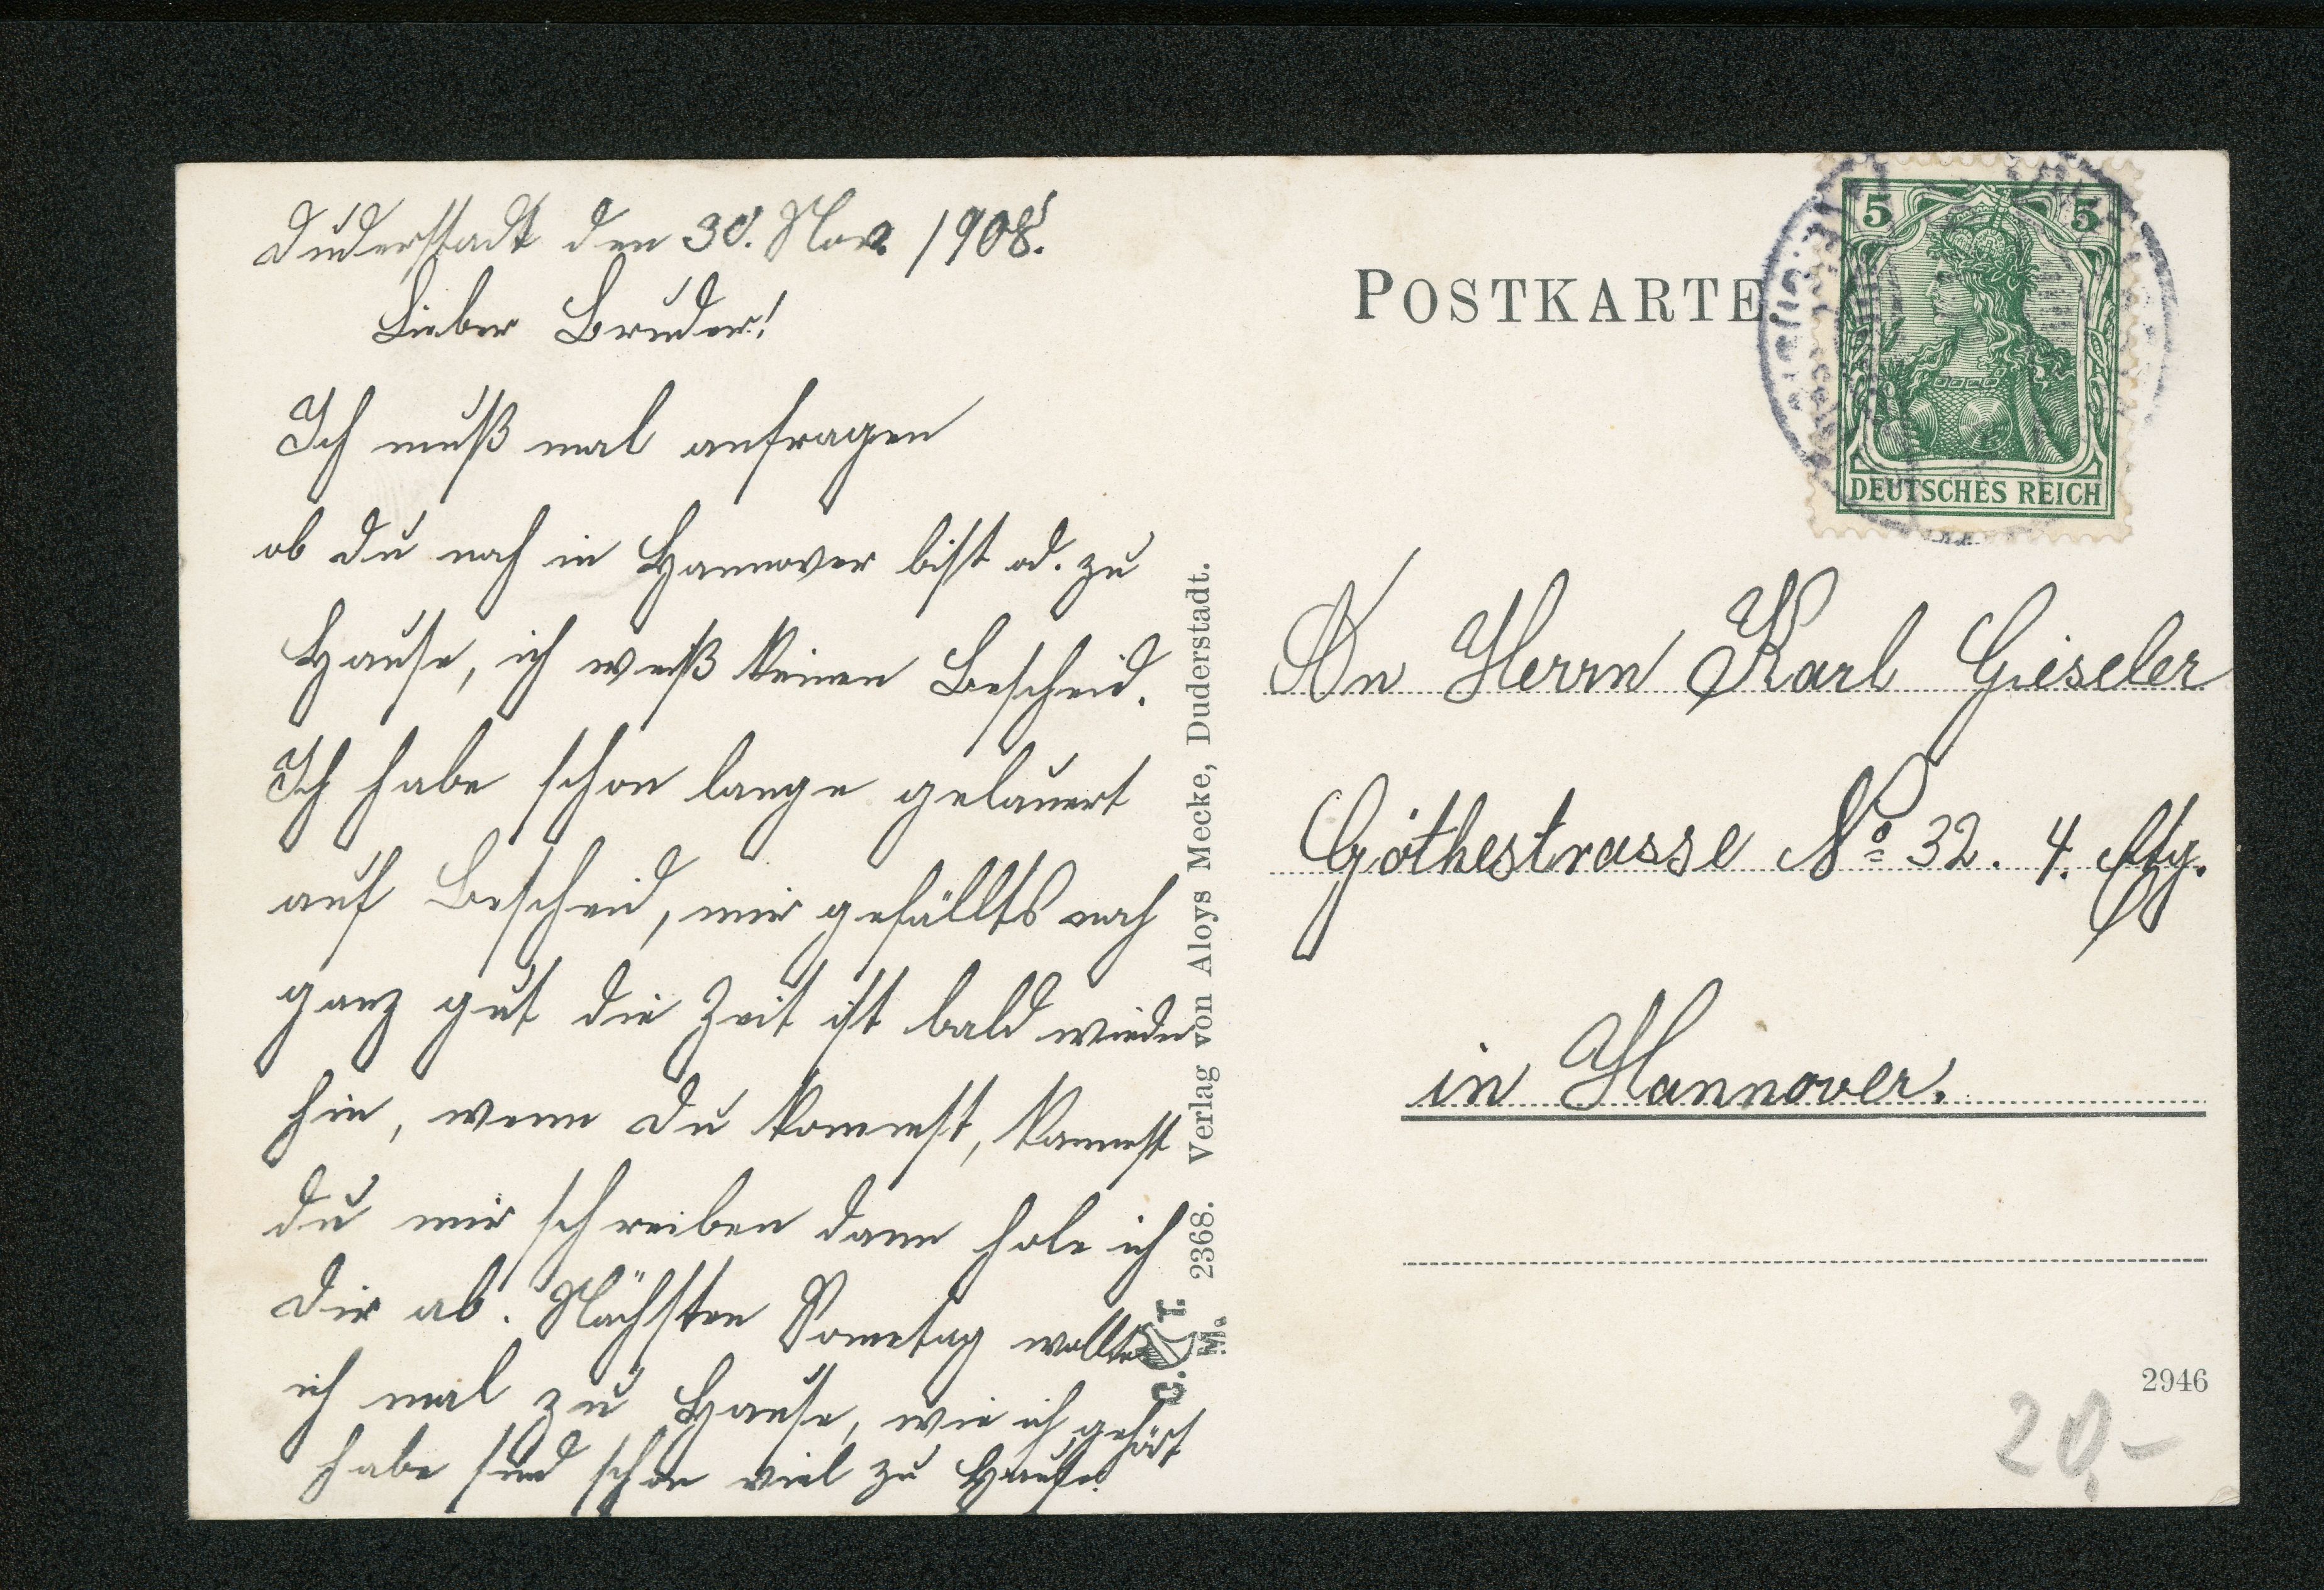 Duderstadt den 30. Nov. 1908.
Lieber Bruder!
Ich muß mal anfragen
ob du noch in Hannover bist od. zu
Hause, ich weiß keinen Bescheid.
Ich habe schon lange gelauert
auf Bescheid, mir gefällts noch
ganz gut die Zeit ist bald wieder
hin, wenn du kommst, kannst
du mir schreiben dann hole ich
dir ab. Nächsten Sonntag wollte
ich mal zu Hause, wie ich gehört
habe sind schon viel zu Hause.
Verlag von Aloys Mecke, Duderstadt.
2368.
C. T.
M.
POSTKARTE
5 5
DEUTSCHES REICH
An Herrn Karl Gieseler
Göthestrasse No 32. 4. Etg.
in Hannover.
2946
20,-